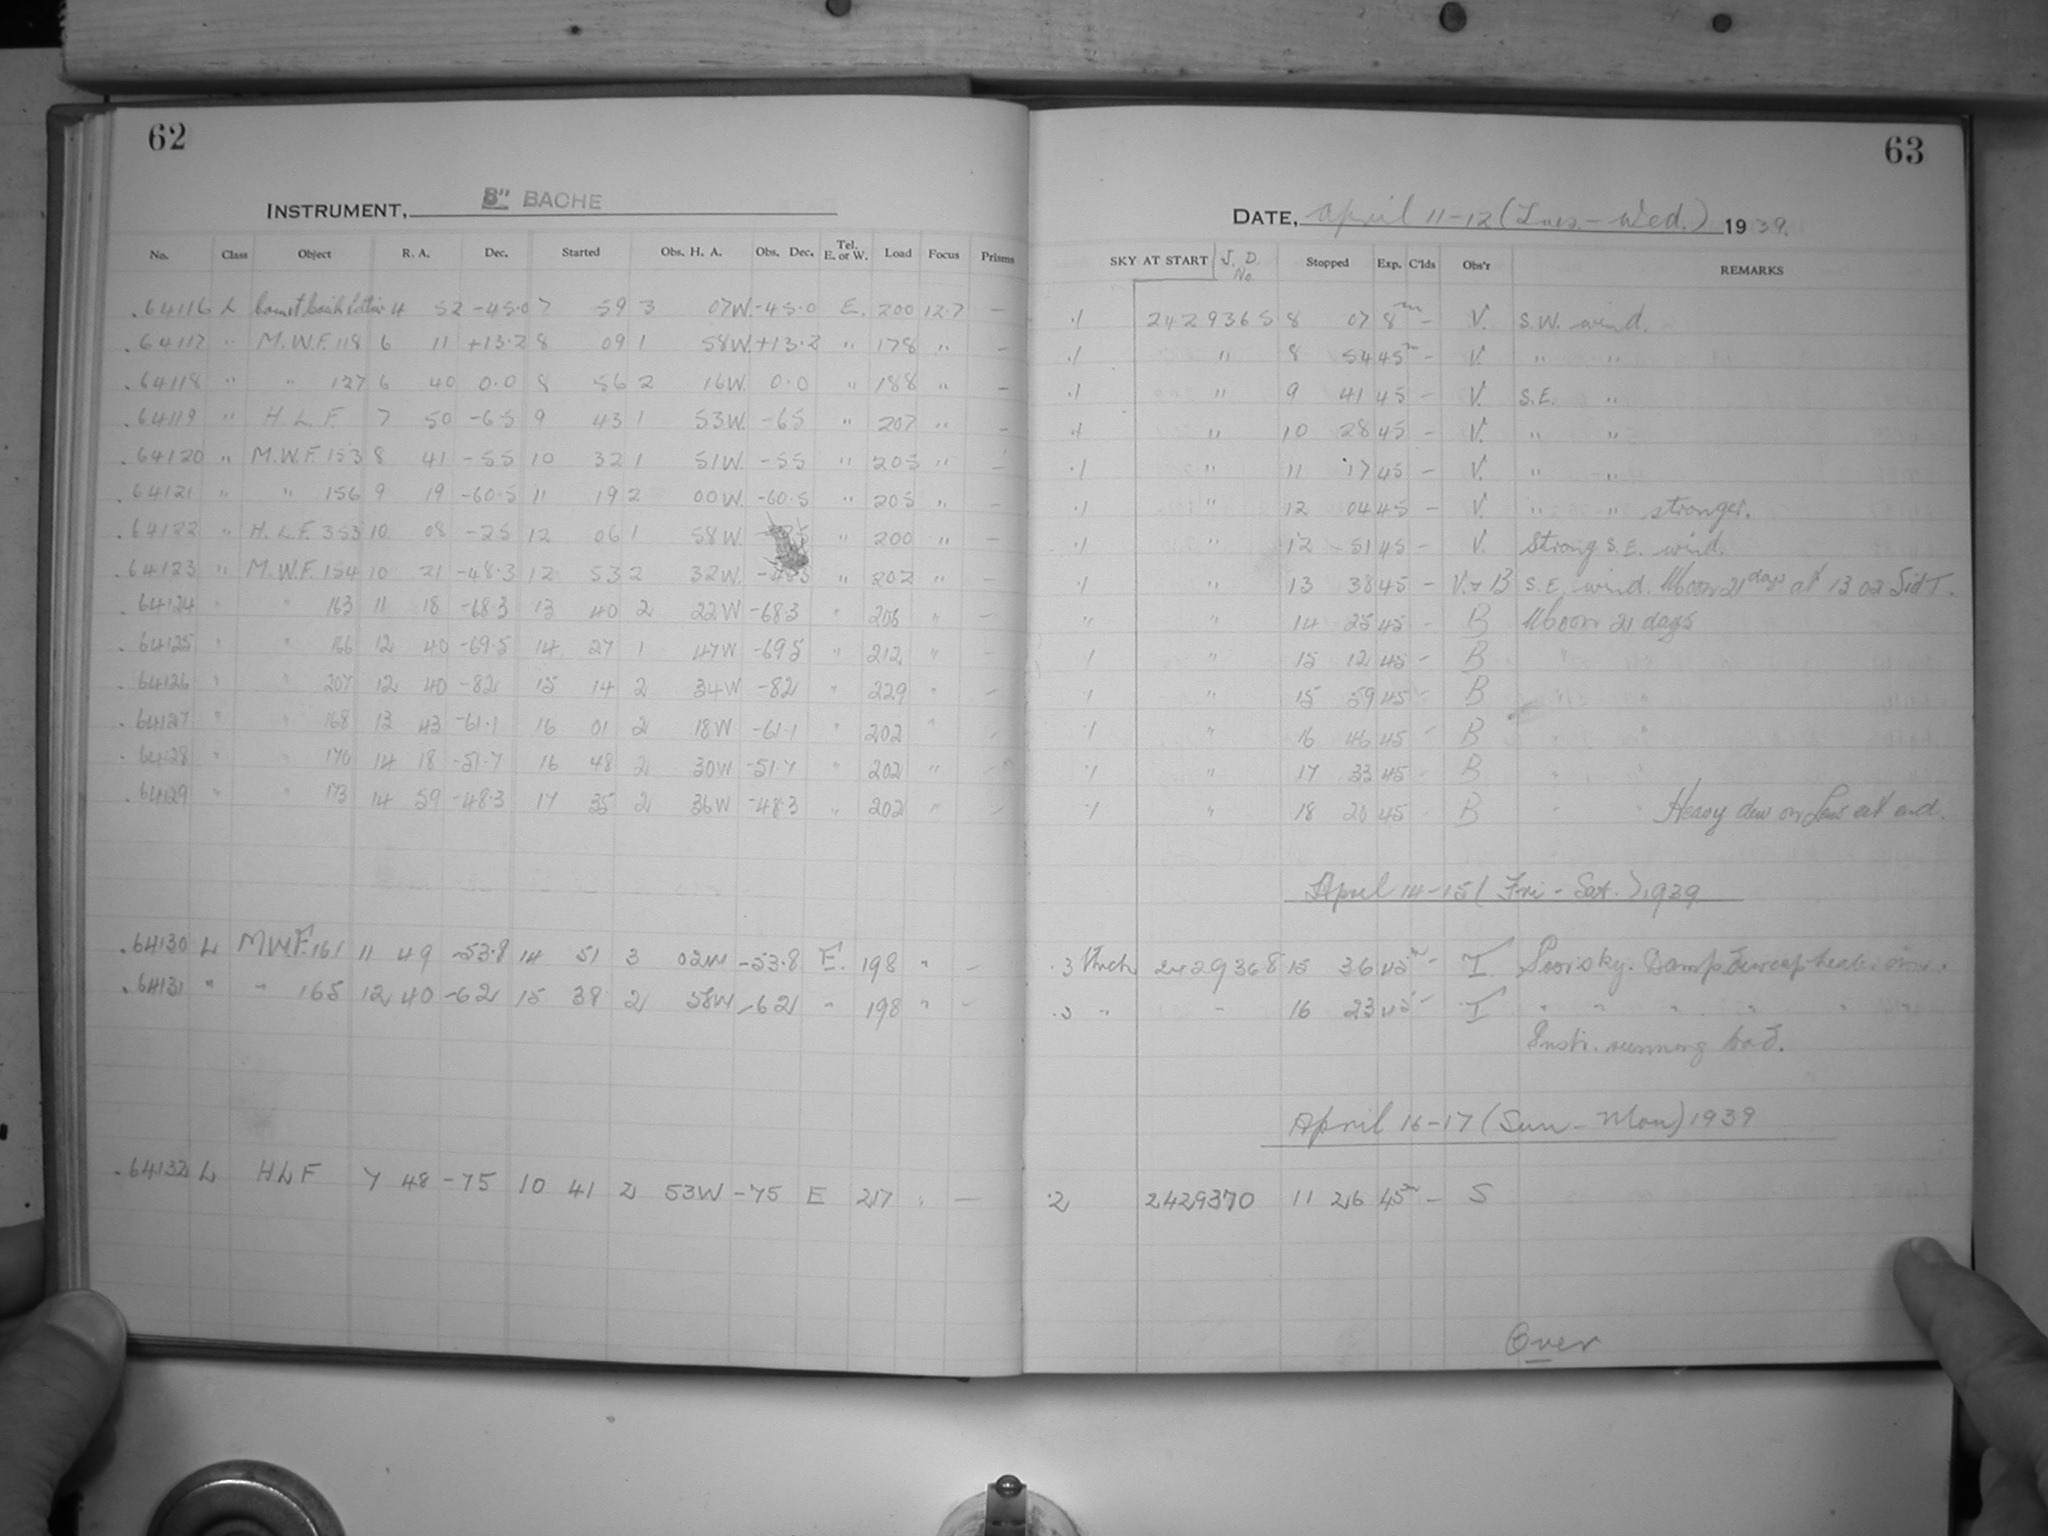 62
INSTRUMENT, 8" BACHE
No. Class Object R. A. Dec. Started Obs. H. A. Obs. Dec. Tel. E. or W. Load Focus Prisms
.64116 L 4 52 -45.0 7 59 3 07W. -45.0 E. 200 12.7 —
.64117 " M.W.F. 118 6 11 +13.2 8 09 1 58W. +13.2 " 178 " —
.64118 " " 127 6 40 0.0 8 56 2 16W. 0.0 " 188 " —
.64119 " H.L.F. 7 50 -65 9 43 1 53W. -65 " 207 " —
.64120 " M.W.F. 153 8 41 -55 10 32 1 51W. -55 " 205 " —
.64121 " " 156 9 19 -60.5 11 19 2 00W -60.5 " 205 " —
.64122 " H.L.F. 353 10 08 -25 12 06 1 58W " 200 " —
.64123 " M.W.F. 154 10 21 -48.3 12 53 2 32W. -48.3 " 202 " —
.64124 " " 163 11 18 -68.3 13 40 2 22W -68.3 " 206 " —
.64125 " " 166 12 40 -69.5 14 27 1 47W -69.5 " 212 " —
.64126 " " 207 12 40 -82 15 14 2 34W -82 " 229 " —
.64127 " " 168 13 43 -61.1 16 01 2 18W -61.1 " 202 " —
.64128 " " 170 14 18 -51.7 16 48 2 30W -51.7 " 202 " —
.64129 " " 173 14 59 -48.3 17 35 2 36W -48.3 " 202 " —
.64130 L M.W.F. 161 11 49 -53.8 14 51 3 02W -53.8 E. 198 " —
.64131 " " 165 12 40 -62 15 38 2 58W -62 " 198 " —
.64132 L HLF 7 48 -75 10 41 2 53W -75 E 217 " —
63
DATE, April 11-12 (Tues. - Wed.) 1939.
SKY AT START J. D. No. Stopped Exp. C'lds Obs'r REMARKS
.1 2429365 8 07 8m — V. S.W. wind.
.1 " 8 54 45m — V. " "
.1 " 9 41 45 — V. S.E. "
.1 " 10 28 45 — V. " "
.1 " 11 17 45 — V. " "
.1 " 12 04 45 — V. " " stronger.
.1 " 12 51 45 — V. Strong S.E. wind.
.1 " 13 38 45 — V. & B S.E. wind. Moon 21 days at 13 02 Sid T.
" " 14 25 45 — B Moon 21 days
.1 " 15 12 45 — B "
.1 " 15 59 45 — B "
.1 " 16 46 45 — B " "
.1 " 17 33 45 — B " "
.1 " 18 20 45 — B " " Heavy dew on Lens at end.
April 14-15 (Fri - Sat.) 1939
.3 thick 2429368 15 36 45m — I Poor sky. Damp Dewcap heater on.
.3 " " 16 23 45 — I " " " " " "
Instr. running bad.
April 16-17 (Sun - Mon) 1939
.2 2429370 11 26 45m — S
Over